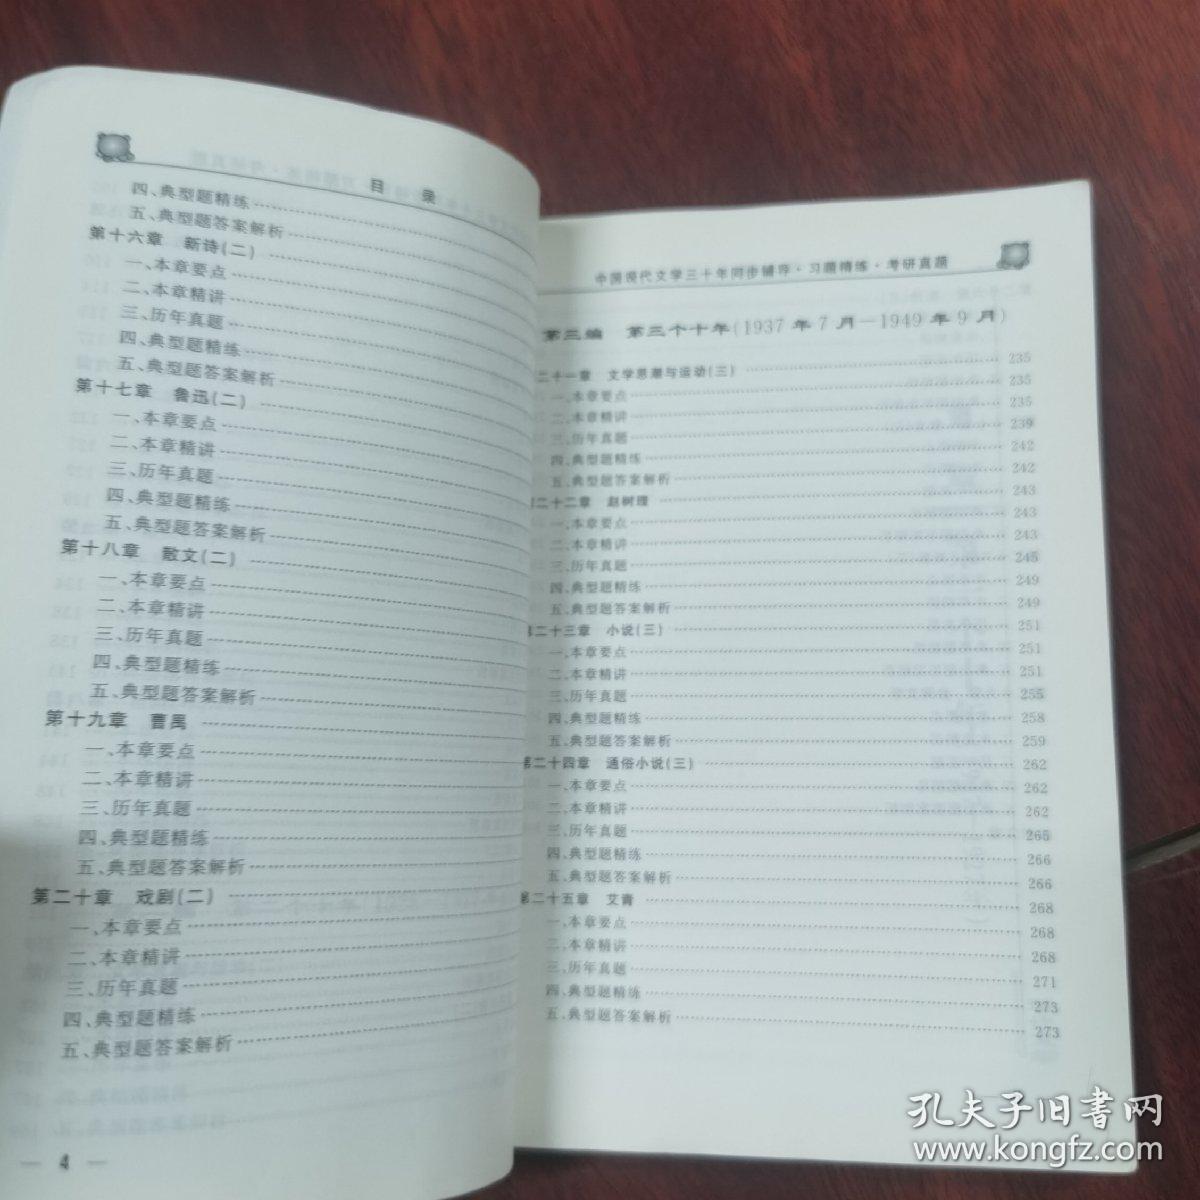 目 录
四、典型题精练
五、典型题答案解析
第十六章 新诗(二)
一、本章要点
二、本章精讲
三、历年真题
四、典型题精练
五、典型题答案解析
第十七章 鲁迅(二)
一、本章要点
二、本章精讲
三、历年真题
四、典型题精练
五、典型题答案解析
第十八章 散文(二)
一、本章要点
二、本章精讲
三、历年真题
四、典型题精练
五、典型题答案解析
第十九章 曹禺
一、本章要点
二、本章精讲
三、历年真题
四、典型题精练
五、典型题答案解析
第二十章 戏剧(二)
一、本章要点
二、本章精讲
三、历年真题
四、典型题精练
五、典型题答案解析
— 4 —
中国现代文学三十年同步辅导·习题精练·考研真题
第三编 第三个十年(1937年7月—1949年9月)
二十一章 文学思潮与运动(三) 235
一、本章要点 235
二、本章精讲 235
三、历年真题 239
四、典型题精练 242
五、典型题答案解析 242
二十二章 赵树理 243
一、本章要点 243
二、本章精讲 243
三、历年真题 245
四、典型题精练 249
五、典型题答案解析 249
二十三章 小说(三) 251
一、本章要点 251
二、本章精讲 251
三、历年真题 255
四、典型题精练 258
五、典型题答案解析 259
第二十四章 通俗小说(三) 262
一、本章要点 262
二、本章精讲 262
三、历年真题 265
四、典型题精练 266
五、典型题答案解析 266
第二十五章 艾青 268
一、本章要点 268
二、本章精讲 268
三、历年真题 271
四、典型题精练 273
五、典型题答案解析 273
孔夫子旧书网
www.kongfz.com